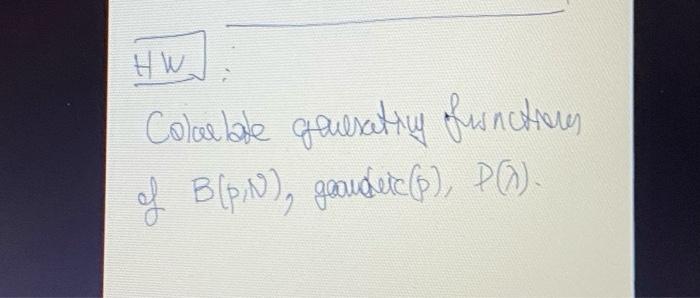 HW :
Calculate generating functions
of B(p,N), geometric(p), P(λ).